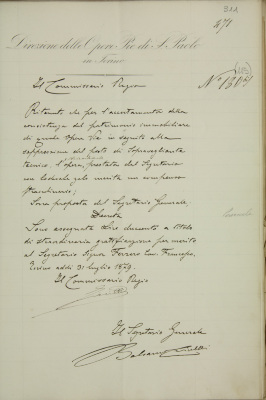 311
471
Direzione delle Opere Pie di S. Paolo
in Torino
Il Commissario Regio
Ritenuto che per l'accertamento della
consistenza del patrimonio immobiliare
di questa Opera Pia in seguito alla
soppressione del posto di Sorveglianza
tecnico l'opera prestata dal Segretario
merita un compenso
straordinario;
Sulla proposta del Segretario Generale,
Decreta
Sono assegnate Lire duecento a titolo
di straordinaria gratificazione per merito
al Segretario Signor Ferrero Cav. Francesco,
Torino addì 31 luglio 1879
Il Commissario Regio
Il Segretario Generale